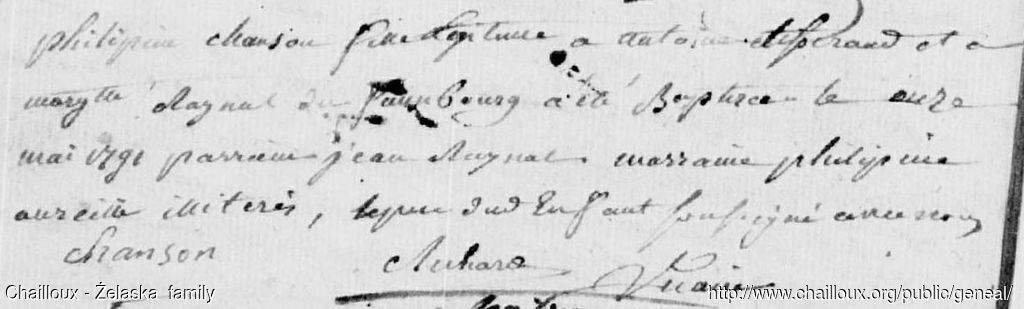 philipine chanson fille legitime a antoine et a
margtte Raynal du faauxbourg a été Baptisée le onze
mai 1791 parrain jean Raynal marraine philipine
illiterés, le pere dud Enfant soussigné avec nous
chanson
Vicaire
Chailloux - Żelaska family
http://www.chailloux.org/public/geneal/